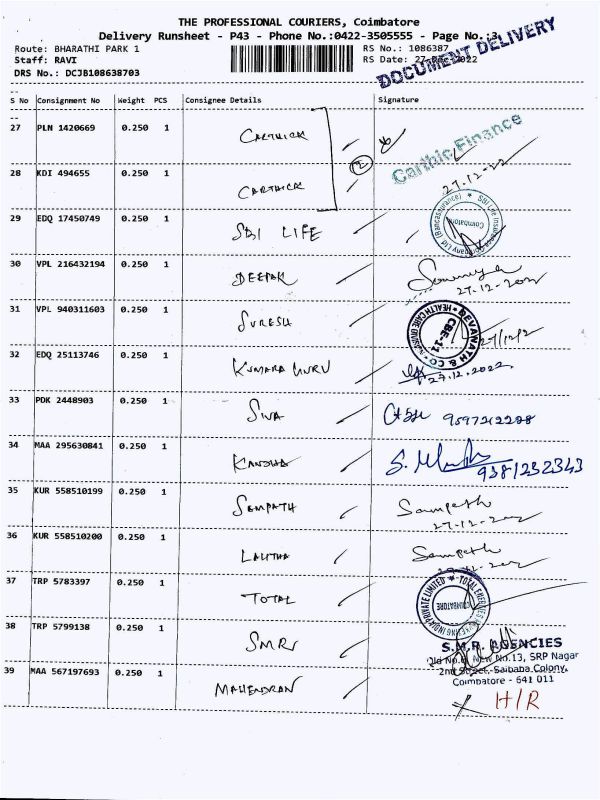 THE PROFESSIONAL COURIERS, Coimbatore
Delivery Runsheet - P43 - Phone No.:0422-3505555 - Page No.:3
Route: BHARATHI PARK 1 RS No.: 1086387
Staff: RAVI RS Date: 27-Dec-2022
DRS No.: DCJB108638703
DOCUMENT DELIVERY
S No Consignment No Weight PCS Consignee Details Signature
27 PLN 1420669 0.250 1 CARTHICK
Carthic Finance
28 KDI 494655 0.250 1 CARTHICK 27-12-22
2
29 EDQ 17450749 0.250 1 SBI LIFE
SBI Life Insurance Company Ltd (Bancassurance) Coimbatore
30 VPL 216432194 0.250 1 DEEPAK
27-12-2022
31 VPL 940311603 0.250 1 SURESH 27/12/2
DEVANATH & CO CBE-11
32 EDQ 25113746 0.250 1 KUMARA GURU 27.12.2022
33 PDK 2448903 0.250 1 SIVA
34 MAA 295630841 0.250 1 KANDHA 9381232343
35 KUR 558510199 0.250 1 SEMPATH Sampath
27-12-2022
36 KUR 558510200 0.250 1 LALITHA Sampath
37 TRP 5783397 0.250 1 TOTAL
COIMBATORE
38 TRP 5799138 0.250 1 SMR
S.M.R. AGENCIES
Old No.6, New No.13, SRP Nagar
2nd Street, Saibaba Colony,
Coimbatore - 641 011
39 MAA 567197693 0.250 1 MAHENDRAN
H/R